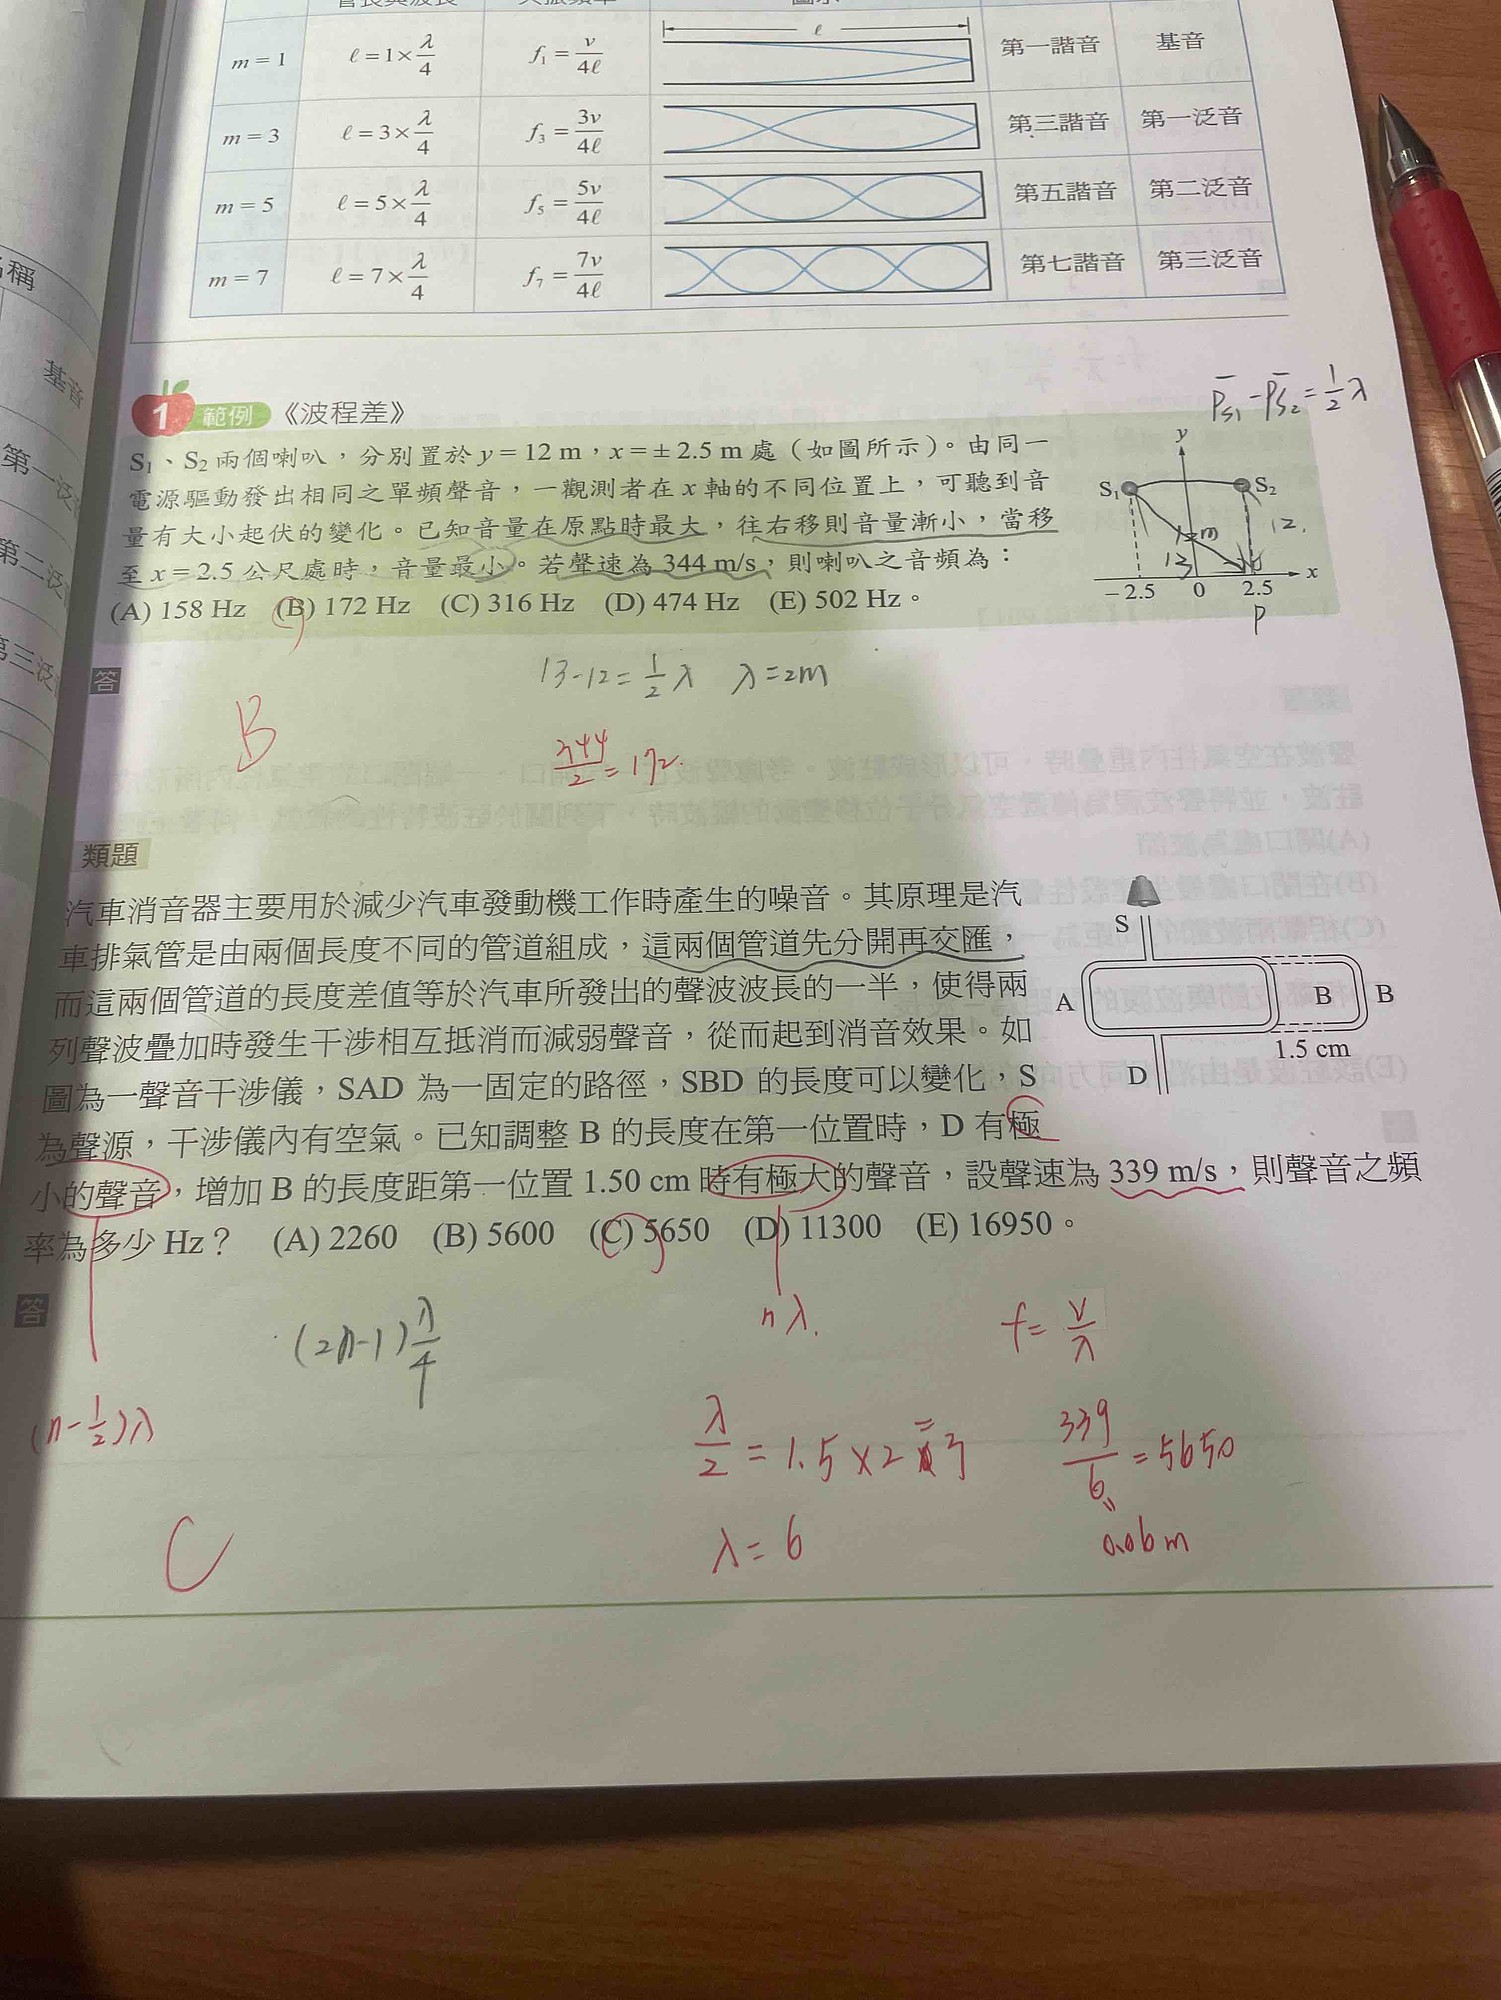 m = 1 ℓ = 1 × λ/4 f₁ = v/4ℓ ℓ 第一諧音 基音
m = 3 ℓ = 3 × λ/4 f₃ = 3v/4ℓ 第三諧音 第一泛音
m = 5 ℓ = 5 × λ/4 f₅ = 5v/4ℓ 第五諧音 第二泛音
m = 7 ℓ = 7 × λ/4 f₇ = 7v/4ℓ 第七諧音 第三泛音
稱
基音
第一泛
第二泛
第三泛
1 範例 《波程差》
S₁、S₂ 兩個喇叭，分別置於 y = 12 m，x = ± 2.5 m 處（如圖所示）。由同一
電源驅動發出相同之單頻聲音，一觀測者在 x 軸的不同位置上，可聽到音
量有大小起伏的變化。已知音量在原點時最大，往右移則音量漸小，當移
至 x = 2.5 公尺處時，音量最小。若聲速為 344 m/s，則喇叭之音頻為：
(A) 158 Hz (B) 172 Hz (C) 316 Hz (D) 474 Hz (E) 502 Hz。
PS₁ - PS₂ = 1/2 λ
y
S₁ S₂
12
13
- 2.5 0 2.5 x
P
答
13-12 = 1/2 λ λ = 2m
B
344/2 = 172
類題
汽車消音器主要用於減少汽車發動機工作時產生的噪音。其原理是汽
車排氣管是由兩個長度不同的管道組成，這兩個管道先分開再交匯，
而這兩個管道的長度差值等於汽車所發出的聲波波長的一半，使得兩
列聲波疊加時發生干涉相互抵消而減弱聲音，從而起到消音效果。如
圖為一聲音干涉儀，SAD 為一固定的路徑，SBD 的長度可以變化，S
為聲源，干涉儀內有空氣。已知調整 B 的長度在第一位置時，D 有極
小的聲音，增加 B 的長度距第一位置 1.50 cm 時有極大的聲音，設聲速為 339 m/s，則聲音之頻
率為多少 Hz？ (A) 2260 (B) 5600 (C) 5650 (D) 11300 (E) 16950。
S
A B B
1.5 cm
D
答
(2n-1) λ/4
nλ.
f = v/λ
(n-1/2)λ
λ/2 = 1.5 × 2 = 3
339/6 = 5650
C
λ = 6
0.06 m